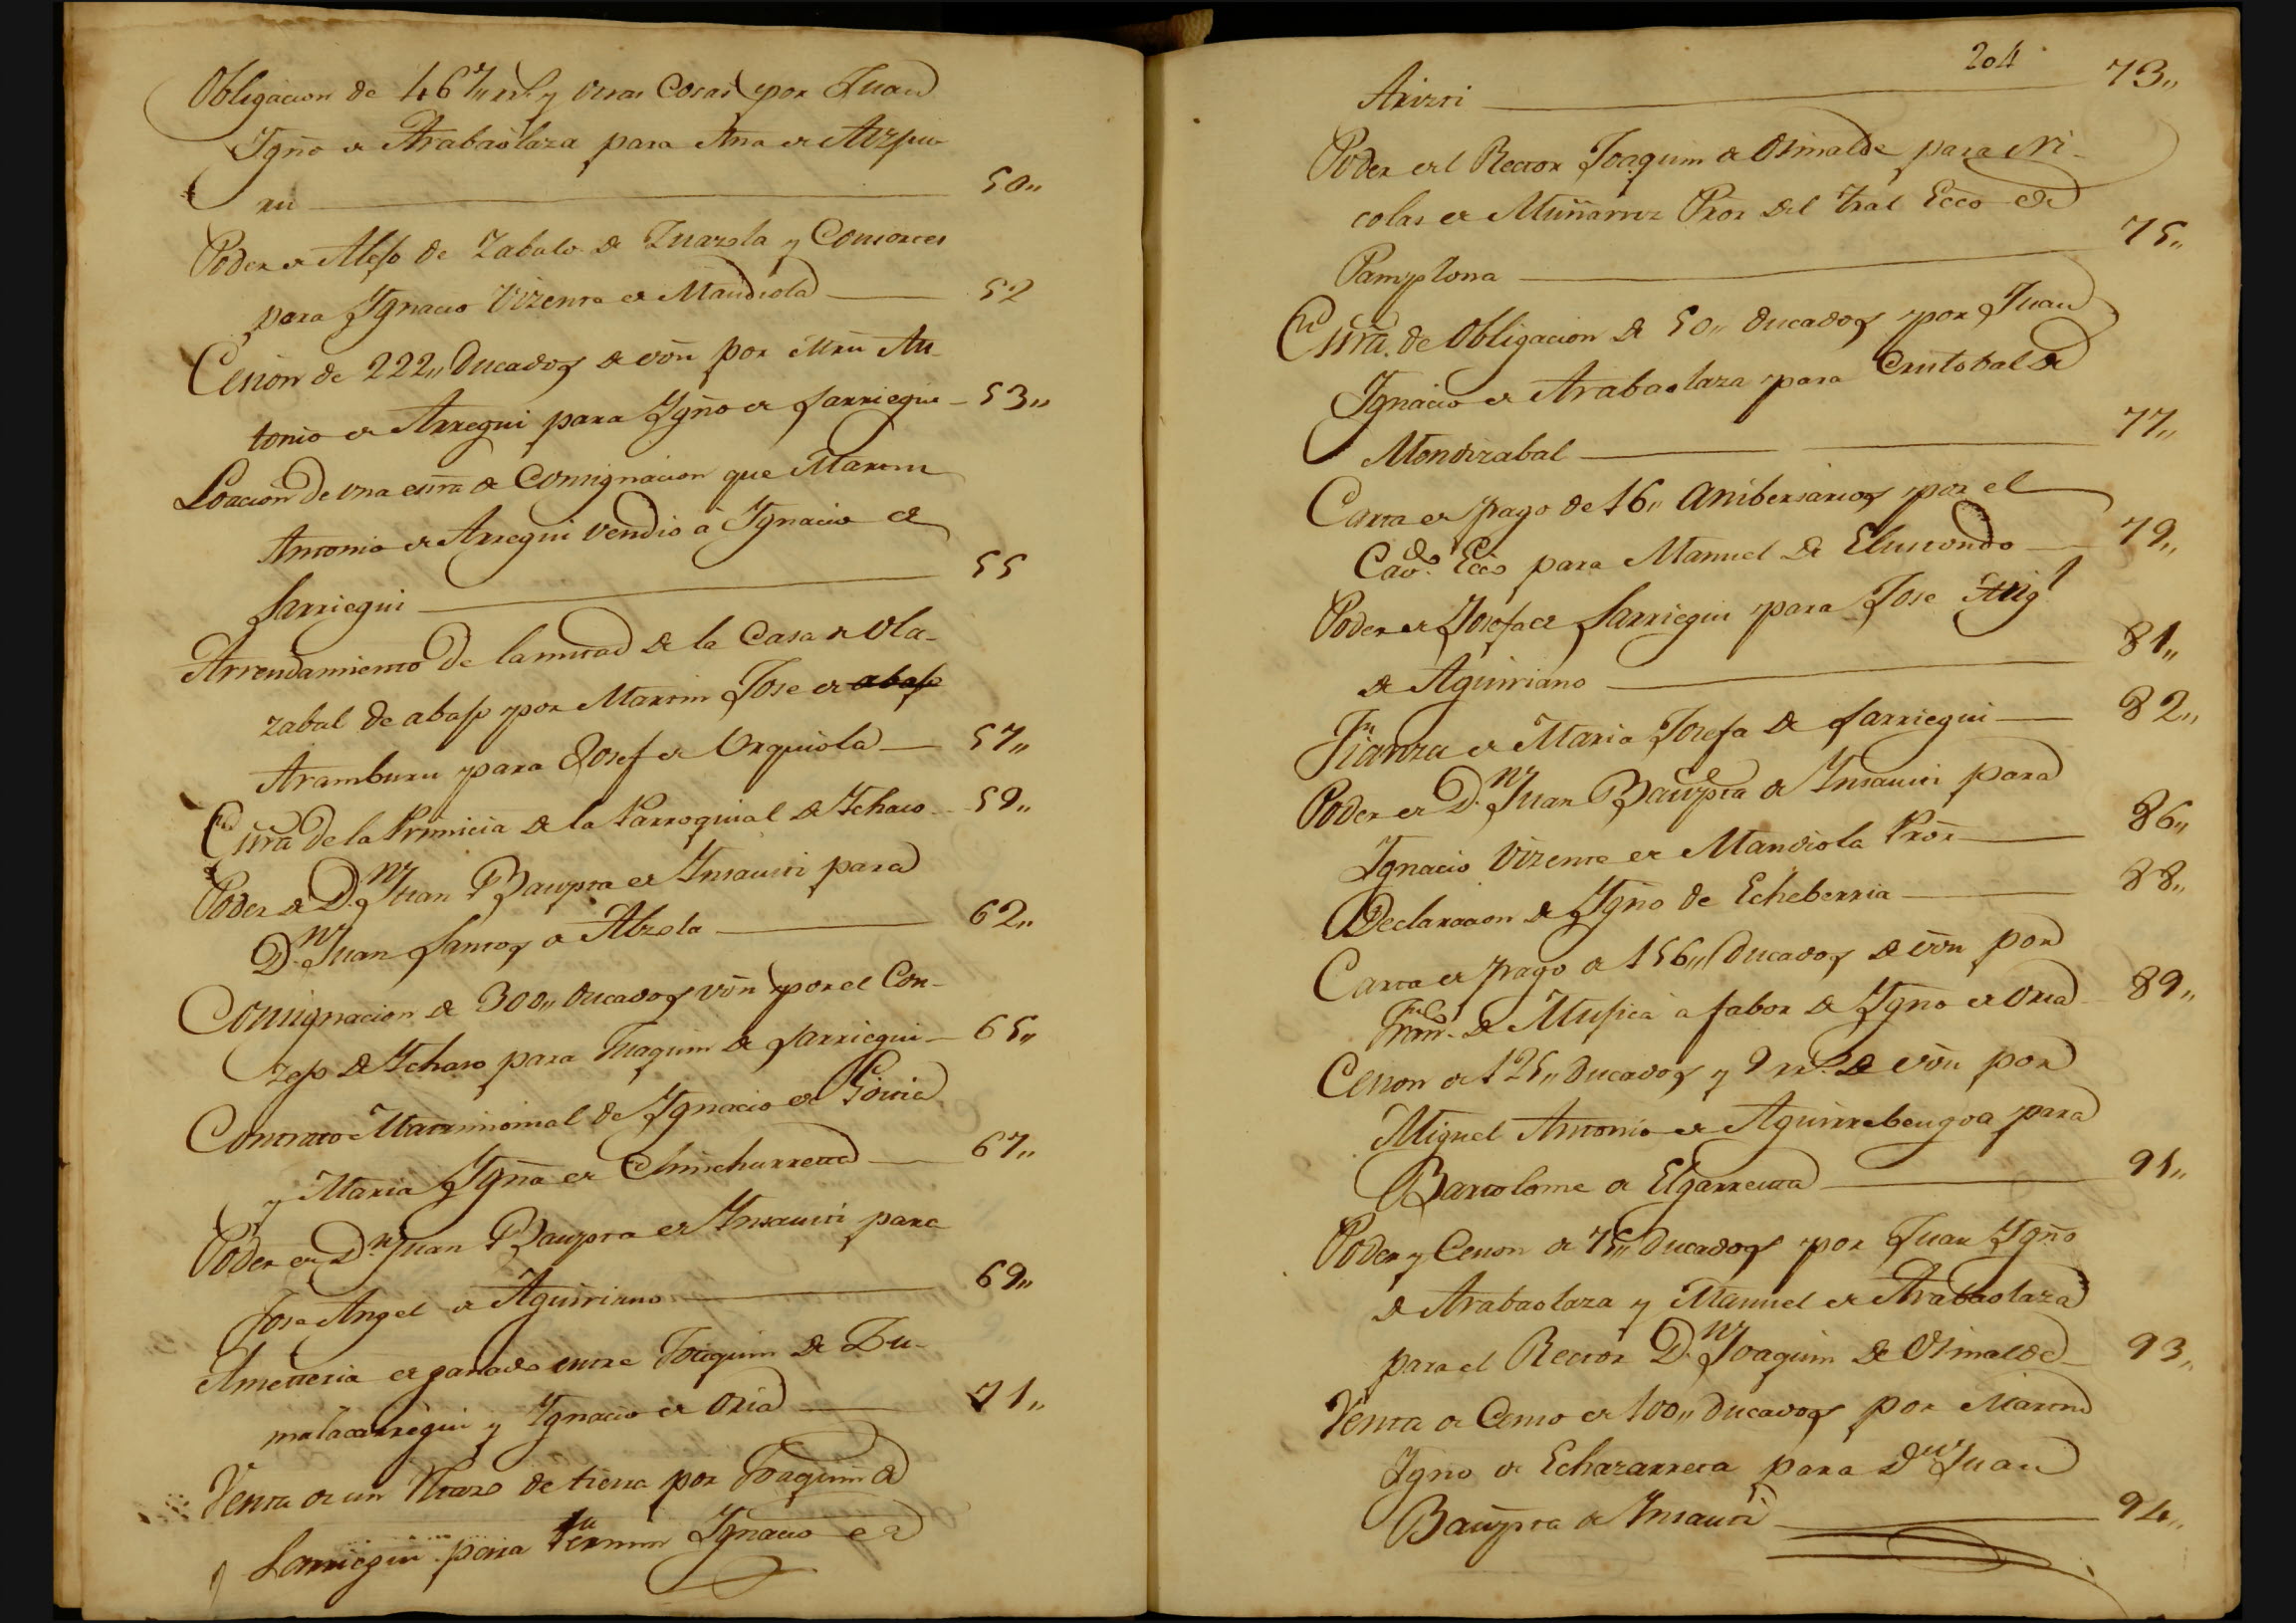 Obligacion de 467,, rs. y otras Cosas por Juan
Ygño de Arabaolaza para Ana de Aizpu-
ru 50,,
Poder de Alejo de Zabalo de Zuazola y Consortes
para Ygnacio Vizente de Mandiola 52
Cesion de 222,, Ducados de von por Mrn An-
tonio de Arregui para Ygño de Sarriegui 53,,
Loacion de una esrra de Consignacion que Martin
Antonio de Arregui vendio à Ygnacio de
Sarriegui 55
Arrendamiento de la mitad de la Casa de Ola-
zabal de abajo por Martin Jose de abajo
Aramburu para Josef de Urquiola 57,,
Esrra de la Primicia de la Parroquial de Ychaso 59,,
Poder de Dn. Juan Baupta de Ynsausti para
Dn. Juan Santos de Alzola 62,,
Consignacion de 300,, Ducados von por el Con-
zejo de Ychaso para Juaquim de Sarriegui 65,,
Contrato Matrimonial de Ygnacio de Goitia
y Maria Ygña de Chinchurreta 67,,
Poder de Dn. Juan Baupta de Ynsausti para
Jose Angel de Aguiriano 69,,
Ametteria de ganado entre Joaquim de Zu-
malacarregui y Ygnacio de Oria 71,,
Venta de un trozo de tierra por Joaquim de
Sarriegui para Fermin Ygnacio de
204
Arizti 73,,
Poder del Rector Joaquim de Osinalde para Ni-
colas de Muñarriz Pror del tral Ecco de
Pamplona 75,,
Esrra. de Obligacion de 50,, ducados por Juan
Ygnacio de Arabaolaza para Cristobal de
Mendizabal 77,,
Carta de pago de 16,, anibersarios por el
Cavdo. Ecco para Manuel de Elusondo 79,,
Poder de Josefa de Sarriegui para Jose Angl
de Aguiriano 81,,
Fianza de Maria Josefa de Sarriegui 82,,
Poder de Dn. Juan Baupta de Ynsausti para
Ygnacio Vizente de Mandiola Pror 86,,
Declaracion de Ygño de Echeberria 88,,
Carta de pago de 156,, Ducados de von por
de Mugica à fabor de Ygño de Oria 89,,
Cesion de 125,, Ducados y 9 rrs. de von por
Miguel Antonio de Aguirrebengoa para
Bartolome de Elgarresta 91,,
Poder y Cesion de 75,, Ducados por Juan Ygño
de Arabaolaza y Manuel de Arabaolaza
para el Rector Dn. Joaquim de Osinalde 93,,
Venta de Censo de 100,, Ducados por Martin
Ygño de Echazarreta para Dn Juan
Baupta de Ynsausti 94,,